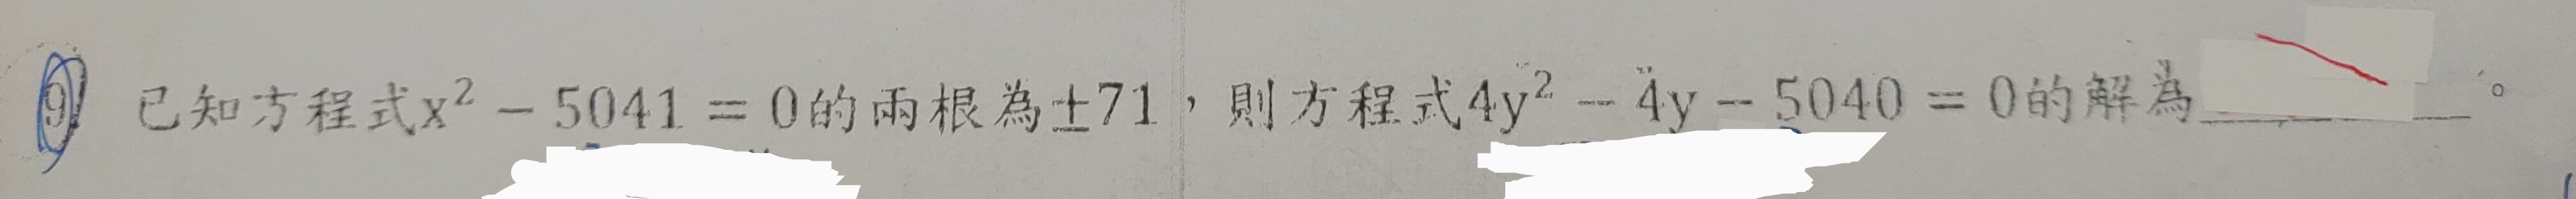 9. 已知方程式x² − 5041 = 0的兩根為±71，則方程式4y² − 4y − 5040 = 0的解為＿＿＿＿＿＿。